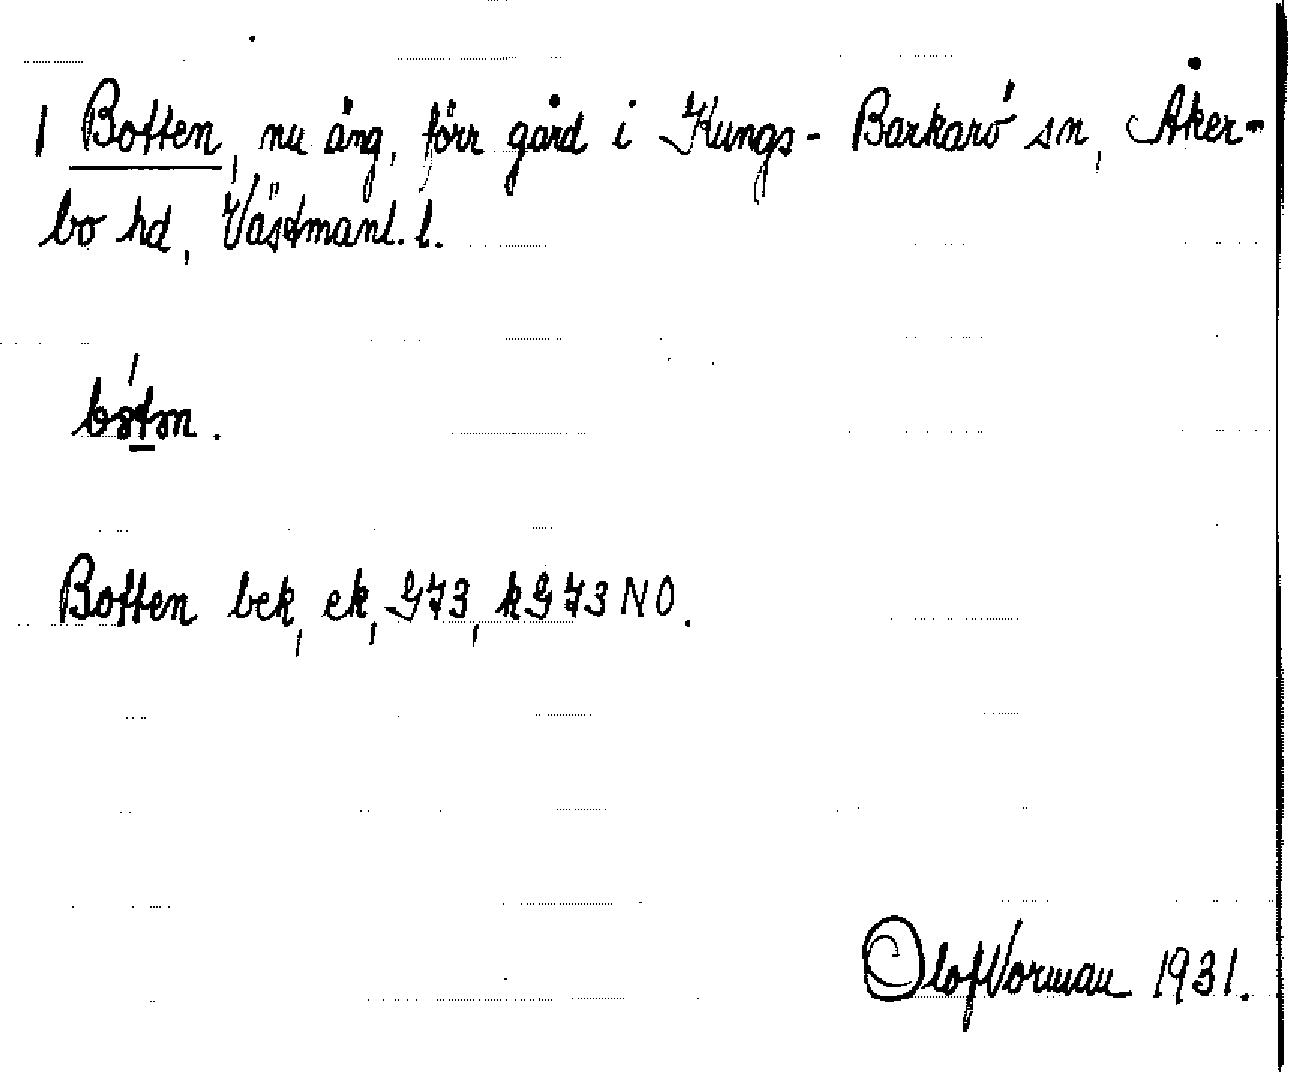 1 Botten, nu äng, förr gård i Kungs-Barkarö sn, Åker-
bo hd, Västmanl. l.
Botten bek, ek, GJ3, kGJ3 NO.
Olof Vorman 1931.